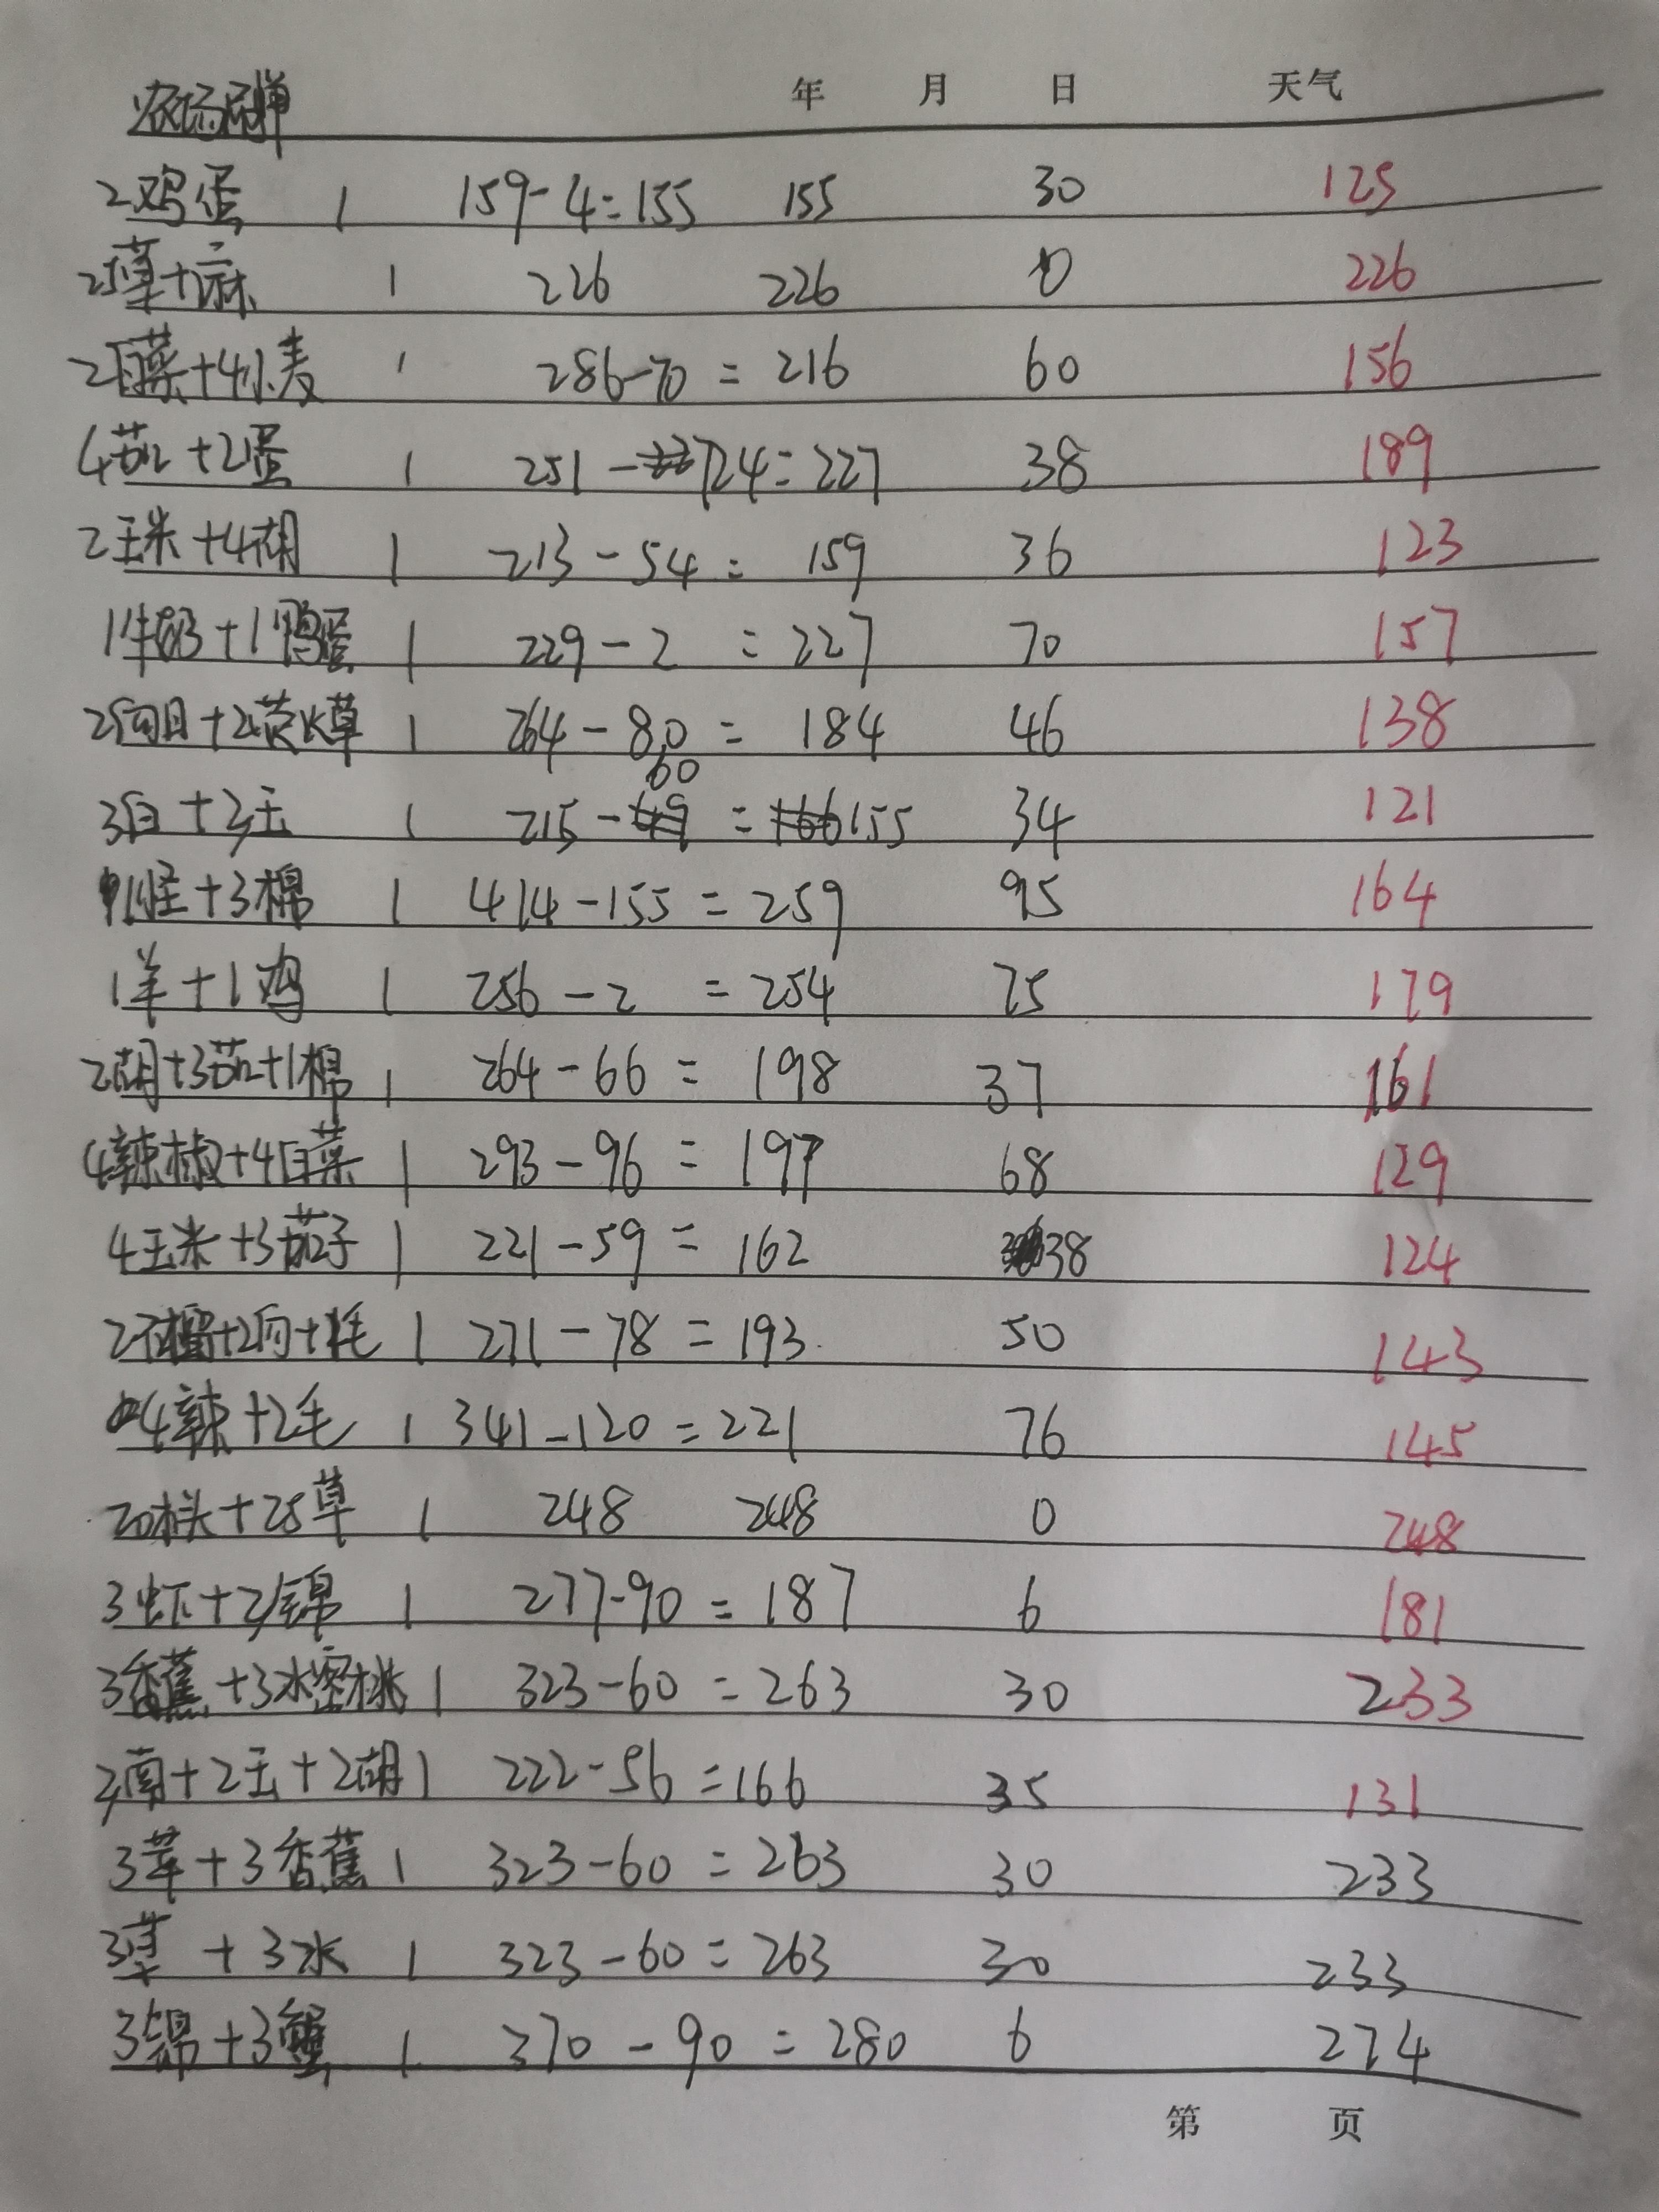 年 月 日 天气
农场品单
2鸡蛋 1 159-4=155 155 30 125
1 226 226 0 226
2白菜+4小麦 1 286-70=216 60 156
4茄+2蛋 1 251-24=227 38 189
2玉米+4胡 1 213-54=159 36 123
1牛奶+1鸭蛋 1 229-2=227 70 157
2向日+2荧火草 1 264-80=184 46 138
3白+3玉 1 215-60=155 34 121
1怪+3棉 1 414-155=259 95 164
1羊+1鸡 1 256-2=254 75 179
2胡+3茄+1棉 1 264-66=198 37 161
4辣椒+4白菜 1 293-96=197 68 129
4玉米+3茄子 1 221-59=162 38 124
2石榴+2向+1毛 1 271-78=193 50 143
4辣+2毛 1 341-120=221 76 145
20木头+25草 1 248 248 0 248
3虾+3锦 1 277-90=187 6 181
3香蕉+3水密桃 1 323-60=263 30 233
2南+2玉+2胡 1 222-56=166 35 131
3苹+3香蕉 1 323-60=263 30 233
3苹+3水 1 323-60=263 30 233
3锦+3蟹 1 370-90=280 6 274
第 页